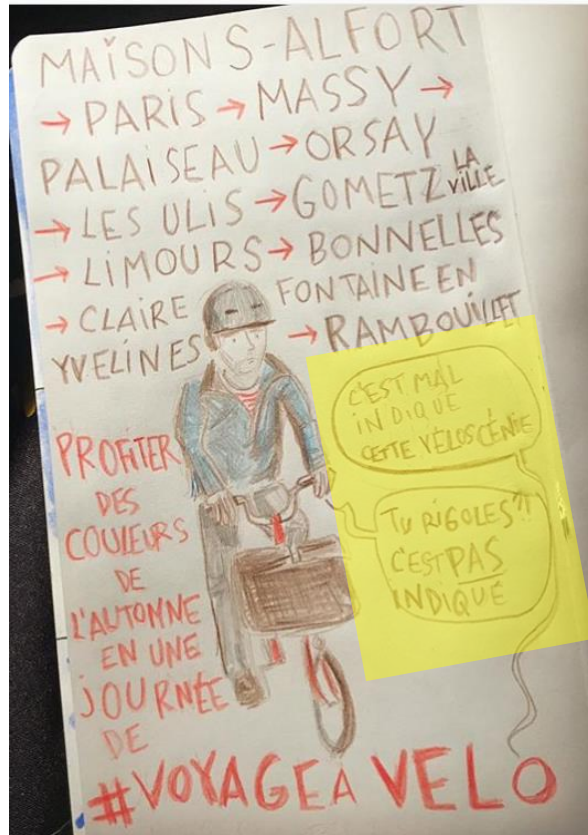 MAISONS-ALFORT
→ PARIS → MASSY →
PALAISEAU → ORSAY
→ LES ULIS → GOMETZ LA VILLE
→ LIMOURS → BONNELLES
→ CLAIRE FONTAINE EN
YVELINES → RAMBOUILLET
C'EST MAL
INDIQUÉ
CETTE VÉLOSCÉNIE
TU RIGOLES ?!
C'EST PAS
INDIQUÉ
PROFITER
DES
COULEURS
DE
L'AUTOMNE
EN UNE
JOURNÉE
DE
#VOYAGEÀVELO